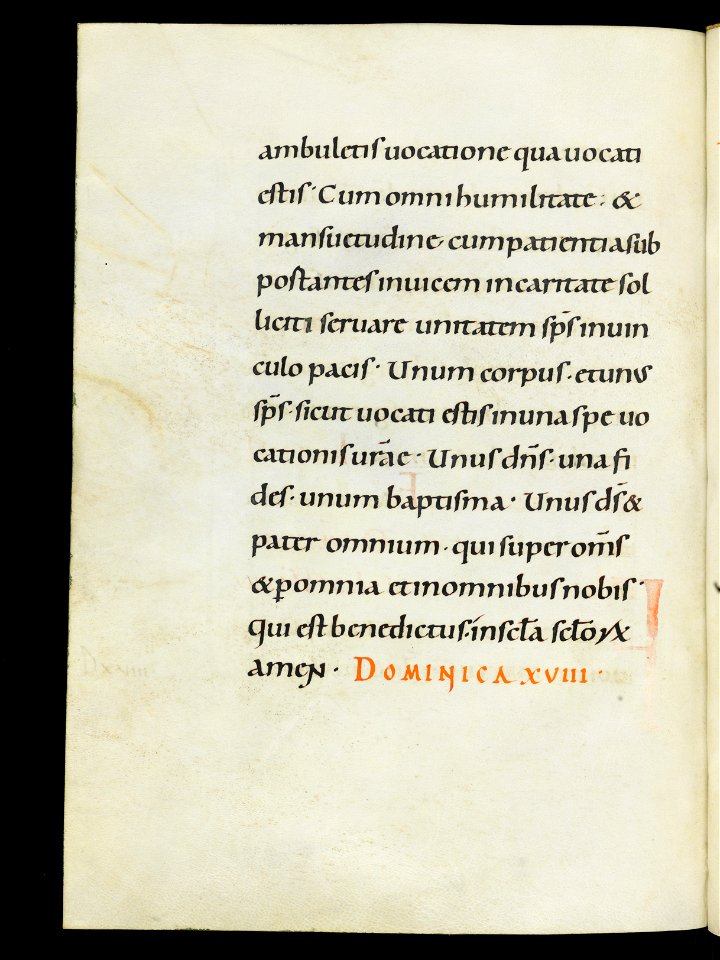 ambuletis uocatione qua uocati
estis · Cum omni humilitate · &
mansuetudine cum patientia sub
portantes inuicem in caritate sol
liciti seruare unitatem sp̄s in uin
culo pacis · Unum corpus · et unus
sp̄s · sicut uocati estis in una spe uo
cationis urāe · Unus dn̄s · una fi
des · unum baptisma · Unus ds̄ &
pater omnium · qui super om̄s
& ꝑ omnia et in omnibus nobis ·
qui est benedictus · in scl̄a scl̄oꝝ
amen · DOMINICA XVIII ·